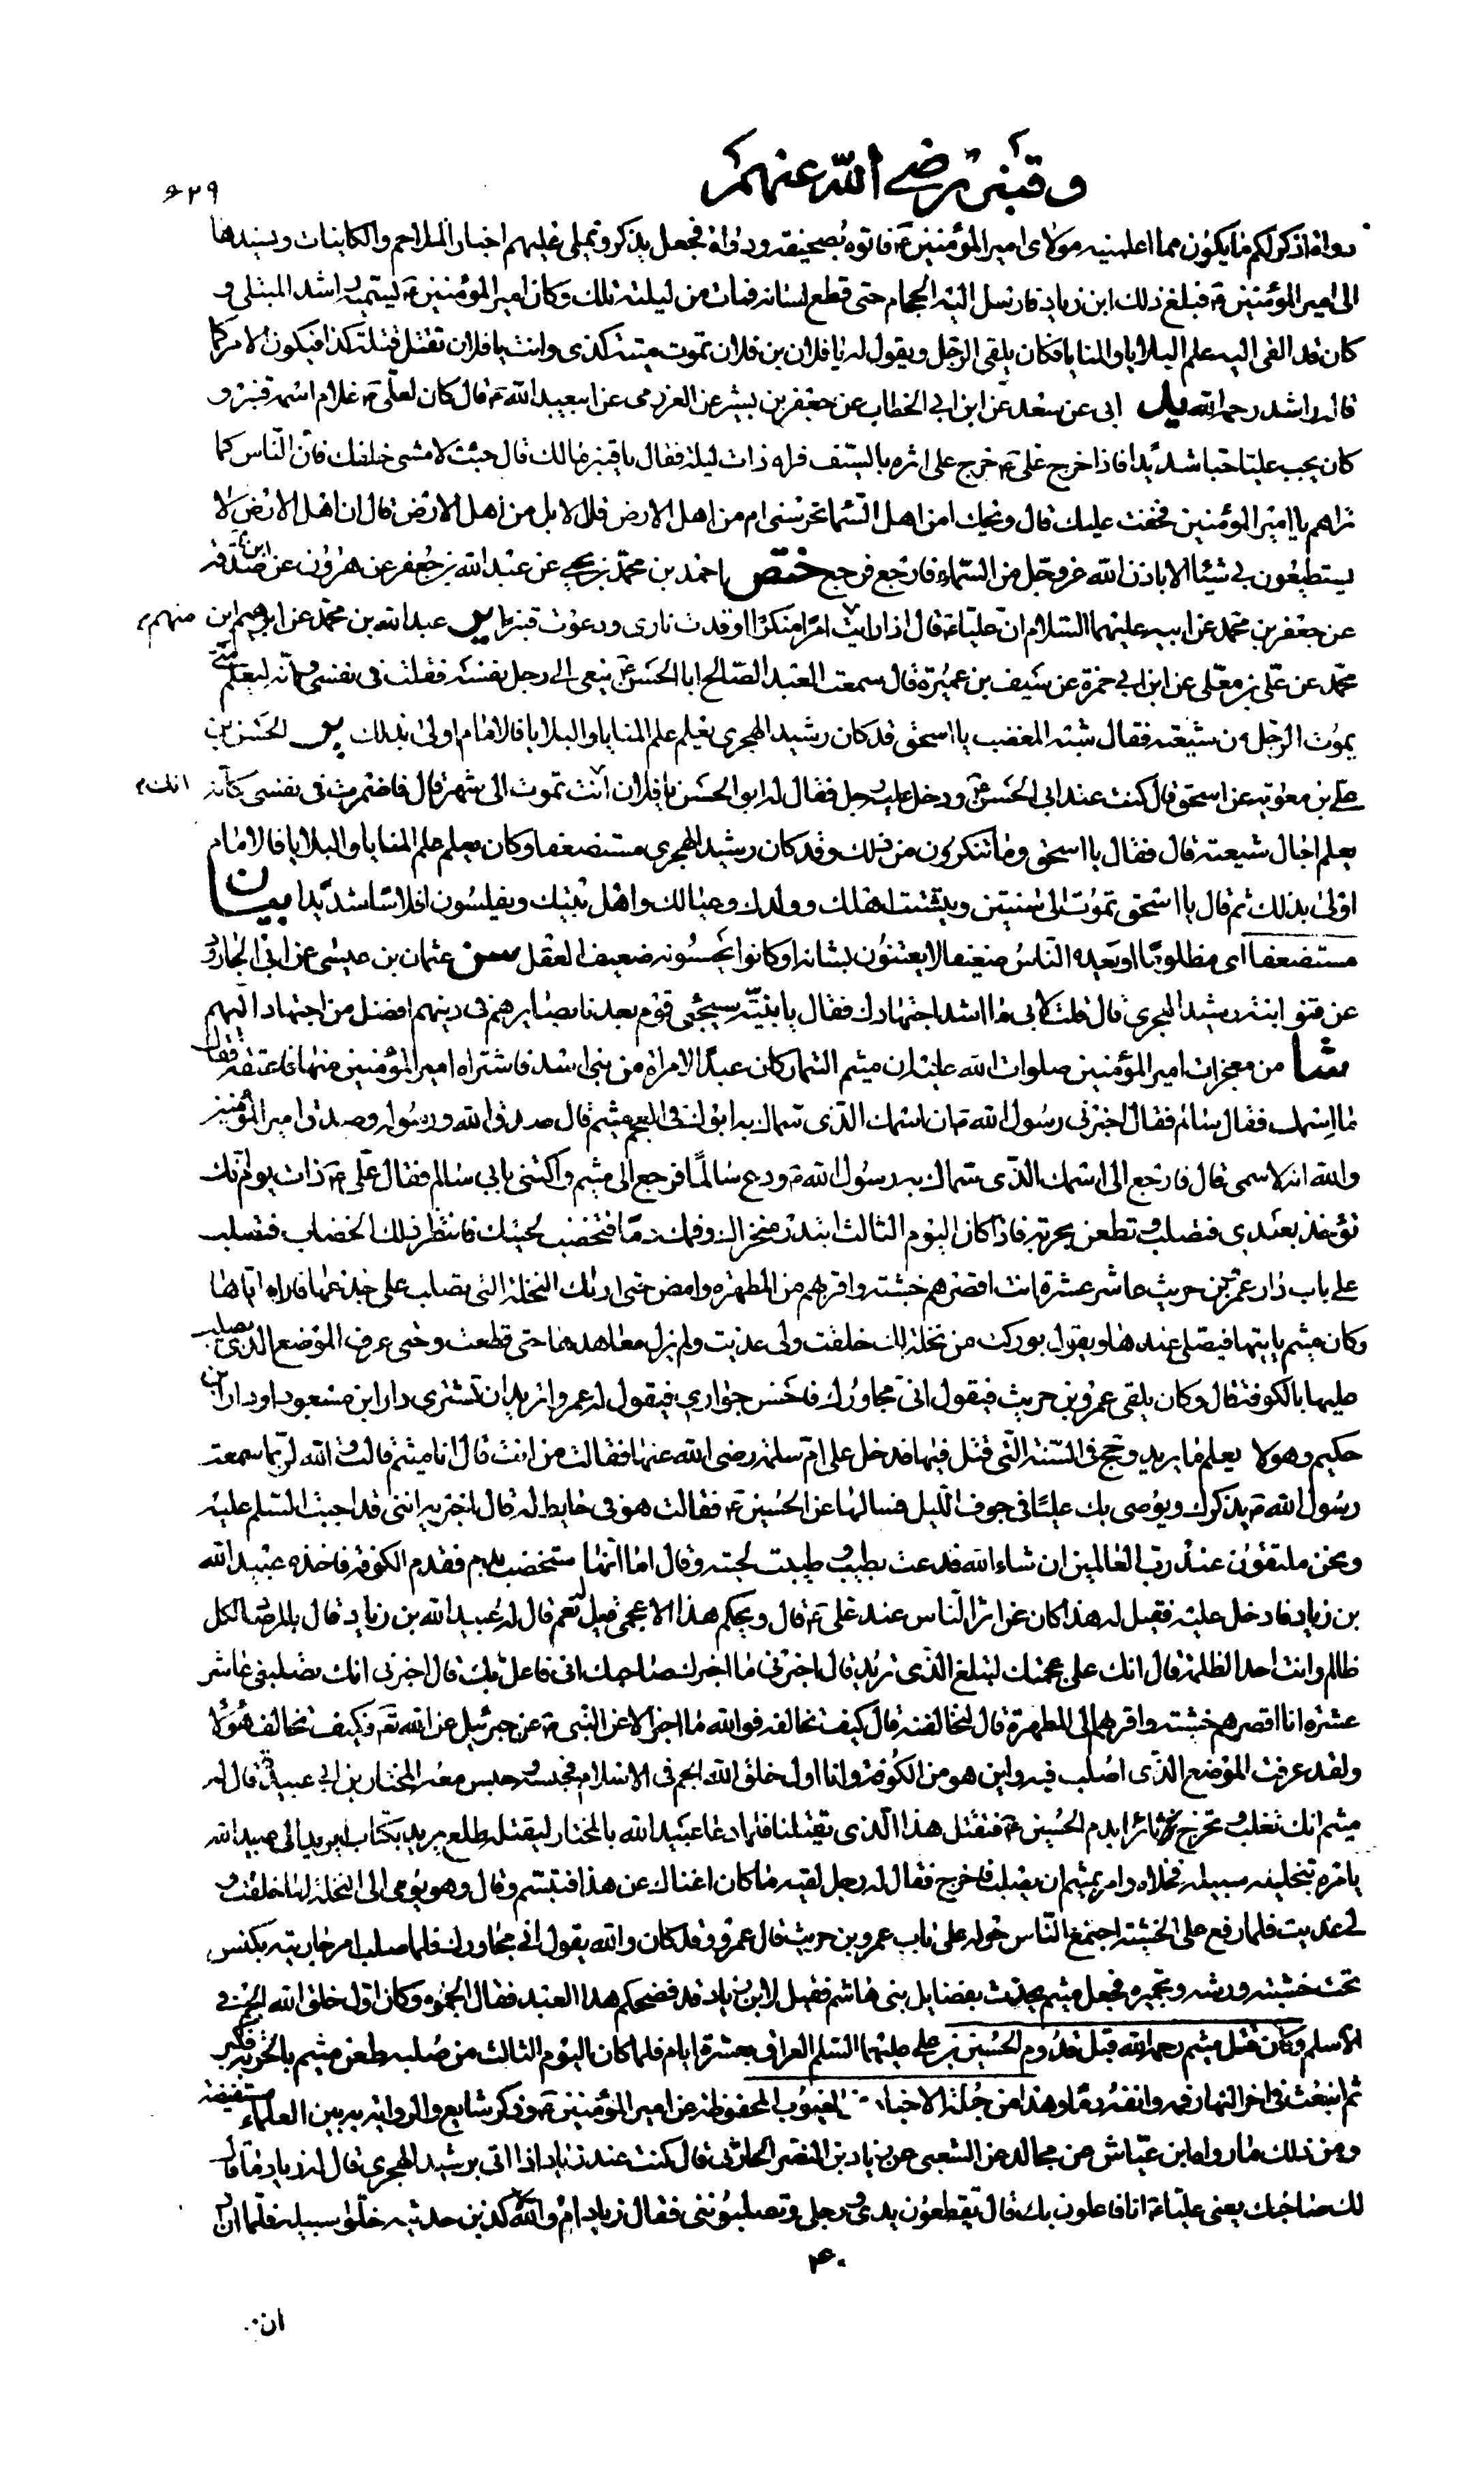 وقنبر رضي الله عنهم
٦٢٩
دواة اذكر لكم ما يكون مما اعلمنيه مولاى امير المؤمنين ع فاتوه بصحيفة ودواة فجعل يذكر ويملى عليهم اخبار الملاحم والكاينات ويسندها
الى امير المؤمنين ع فبلغ ذلك ابن زياد فارسل اليه الحجام حتى قطع لسانه فمات من ليلته تلك وكان امير المؤمنين ع يسميه راشد المبتلى و
كان قد القى اليه علم البلايا والمنايا فكان يلقى الرجل ويقول له يا فلان بن فلان تموت ميتة كذى وانت يا فلان تقتل قتلة كذا فيكون الامر كما
قاله راشد رحمه الله يد ابى عن سعد عن ابن ابي الخطاب عن جعفر بن بشير عن العرزمى عن ابيعبد الله ع قال كان لعلى ع غلام اسمه قنبر و
كان يحب عليا حبا شديدا فاذا خرج على ع خرج على اثره بالسيف فراه ذات ليلة فقال يا قنبر مالك قال جئت لامشى خلفك فان الناس كما
تراهم يا امير المؤمنين فخفت عليك قال ويحك امن اهل السماء تحرسنى ام من اهل الارض قال لا بل من اهل الارض قال ان اهل الارض لا
يستطيعون بي شيئا الا باذن الله عز وجل من السماء فارجع فرجع ختص احمد بن محمد بن يحيى عن عبد الله بن جعفر عن هرون عن ابن صدقة
عن جعفر بن محمد عن ابيه عليهما السلام ان عليا ع قال اذا رايت امرا منكرا اوقدت نارى ودعوت قنبرا ير عبد الله بن محمد عن ابرهيم ابن منهم م
محمد عن على بن معلى عن ابن ابي حمزة عن سيف بن عميرة قال سمعت العبد الصالح ابا الحسن ع ينعى الى رجل نفسه فقلت فى نفسى وانه ليعلم متى
يموت الرجل من شيعته فقال شبه المغضب يا اسحق قد كان رشيد الهجرى يعلم علم المنايا والبلايا فالامام اولى بذلك ير الحسن بن
على بن معوية عن اسحق قال كنت عند ابى الحسن ع ودخل عليه رجل فقال له ابو الحسن يا فلان انت تموت الى شهر قال فاضمرت فى نفسى كانه انك م
يعلم اجال شيعته قال فقال يا اسحق وما تنكرون من ذلك وقد كان رشيد الهجرى مستضعفا وكان يعلم علم المنايا والبلايا فالامام
اولى بذلك ثم قال يا اسحق تموت الى سنتين ويتشتت اهلك وولدك وعيالك واهل بيتك ويفلسون افلاسا شديدا بيان
مستضعفا اى مظلوما او يعده الناس ضعيفا لا يعتنون بشانه او كانوا يحسبونه ضعيف العقل سن عثمان بن عيسى عن ابى الجارود
عن قنو ابنة رشيد الهجرى قال قلت لابى ما اشد اجتهادك فقال يا بنية سيجئ قوم بعدنا بصايرهم فى دينهم افضل من اجتهاد اليهم
شا من معجزات امير المؤمنين صلوات الله عليه ان ميثم التمار كان عبدا لامراة من بنى اسد فاشتراه امير المؤمنين منها فاعتقه فقال
ما اسمك فقال سالم فقال اخبرنى رسول الله ص ان اسمك الذى سماك به ابوك فى العجم ميثم قال صدق الله ورسوله وصدق امير المؤمنين
والله انه لاسمى قال فارجع الى اسمك الذى سماك به رسول الله ص ودع سالما فرجع الى ميثم واكتنى بابي سالم فقال على ع ذات يوم انك
تؤخذ بعدى فتصلب وتطعن بحربة فاذا كان اليوم الثالث ابتدر منخراك وفمك دما فتخضب لحيتك فانتظر ذلك الخضاب فتصلب
على باب دار عمرو بن حريث عاشر عشرة انت اقصرهم خشبة واقربهم من المطهرة وامض حتى اريك النخلة التى تصلب على جذعها فاراه اياها
وكان ميثم ياتيها فيصلى عندها ويقول بوركت من نخلة لك خلقت ولى غذيت ولم يزل معاهدها حتى قطعت وحتى عرف الموضع الذى يصلب
عليها بالكوفة قال وكان يلقى عمرو بن حريث فيقول انى مجاورك فاحسن جوارى فيقول له عمرو اتريد ان تشترى دار ابن مسعود او دار ابن
حكيم وهو لا يعلم ما يريد وحج فى السنة التى قتل فيها فدخل على ام سلمة رضى الله عنها فقالت من انت قال انا ميثم قالت والله لربما سمعت
رسول الله ص يذكرك ويوصى بك عليا فى جوف الليل فسالها عن الحسين ع فقالت هو فى حايط له قال اخبريه اننى قد احببت السلم عليه
ونحن ملتقون عند رب العالمين ان شاء الله فدعت بطيب وطيبت لحيته وقال اما انها ستخضب بدم فقدم الكوفة فاخذه عبيد الله
بن زياد فادخل عليه فقيل له هذا كان من اثر الناس عند على ع قال ويحكم هذا الاعجمى قيل له نعم قال له عبيد الله بن زياد قال بالمرصاد لكل
ظالم وانت احد الظلمة قال انك على عجمتك لتبلغ الذى تريد قال اخبرنى ما اخبرك صاحبك انى فاعل بك قال اخبرنى انك تصلبنى عاشر
عشرة انا اقصرهم خشبة واقربهم الى المطهرة قال لنخالفنه قال كيف تخالفه فوالله ما اخبر الا عن النبى ص عن جبرئيل عن الله تع فكيف تخالف هؤلاء
ولقد عرفت الموضع الذى اصلب فيه واين هو من الكوفة وانا اول خلق الله الجم فى الاسلام فحبسه وحبس معه المختار بن ابي عبيدة قال له
ميثم انك تفلت وتخرج ثائرا بدم الحسين ع فتقتل هذا الذى يقتلنا فلما دعا عبيد الله بالمختار ليقتله طلع بريد بكتاب يزيد الى عبيد الله
يامره بتخلية سبيله فخلاه وامر بميثم ان يصلب فاخرج فقال له رجل لقيه ما كان اغناك عن هذا فتبسم وقال وهو يومى الى النخلة لها خلقت و
لى غذيت فلما رفع على الخشبة اجتمع الناس حوله على باب عمرو بن حريث قال عمرو وقد كان والله يقول انى مجاورك فلما صلب امر جاريته بكنس
تحت خشبته ورشه وتجميره فجعل ميثم يحدث بفضايل بنى هاشم فقيل لابن زياد قد فضحكم هذا العبد فقال الجموه وكان اول خلق الله الجم فى
الاسلم وكان قتل ميثم رحمه الله قبل قدوم الحسين بن على عليهما السلم العراق بعشرة ايام فلما كان اليوم الثالث من صلبه طعن ميثم بالحربة فكبر
ثم انبعث فى اخر النهار فمه وانفه دما وهذا من جملة الاخبار عن الغيوب المحفوظة عن امير المؤمنين ع وذكره شايع والرواية به بين العلماء مستفيضة
ومن ذلك ما رواه ابن عياش عن مجالد عن الشعبى عن زياد بن النضر الحارثى قال كنت عند زياد اذا اتى برشيد الهجرى قال له زياد ما قال
لك صاحبك يعنى عليا ع انا فاعلون بك قال تقطعون يدى ورجلى وتصلبوننى فقال زياد ام والله لاكذبن حديثه خلوا سبيله فلما اراد
٤٠
ان